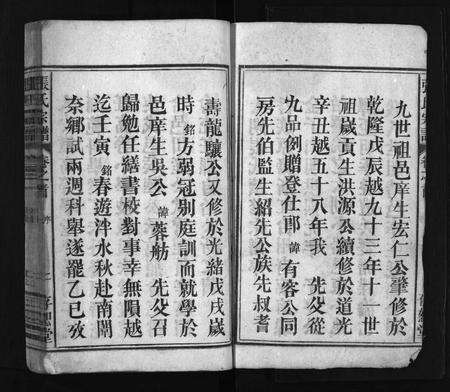 九世祖邑庠生宏仁公肇修於
乾隆戊辰越九十三年十一世
祖歲貢生洪源公續修於道光
辛丑越五十八年我 先父從
九品例贈登仕郎 諱 有容公同
房先伯監生紹先公族先叔耆
壽龍驤公又修於光緒戊戌歲
時 銘 方弱冠別庭訓而就學於
邑庠生吳公 諱 蔡舫 先父召
歸勉任繕書校對事幸無隕越
迄壬寅 銘 春遊泮水秋赴南闈
奈鄉試兩週科舉遂罷乙巳致
張氏宗譜
序